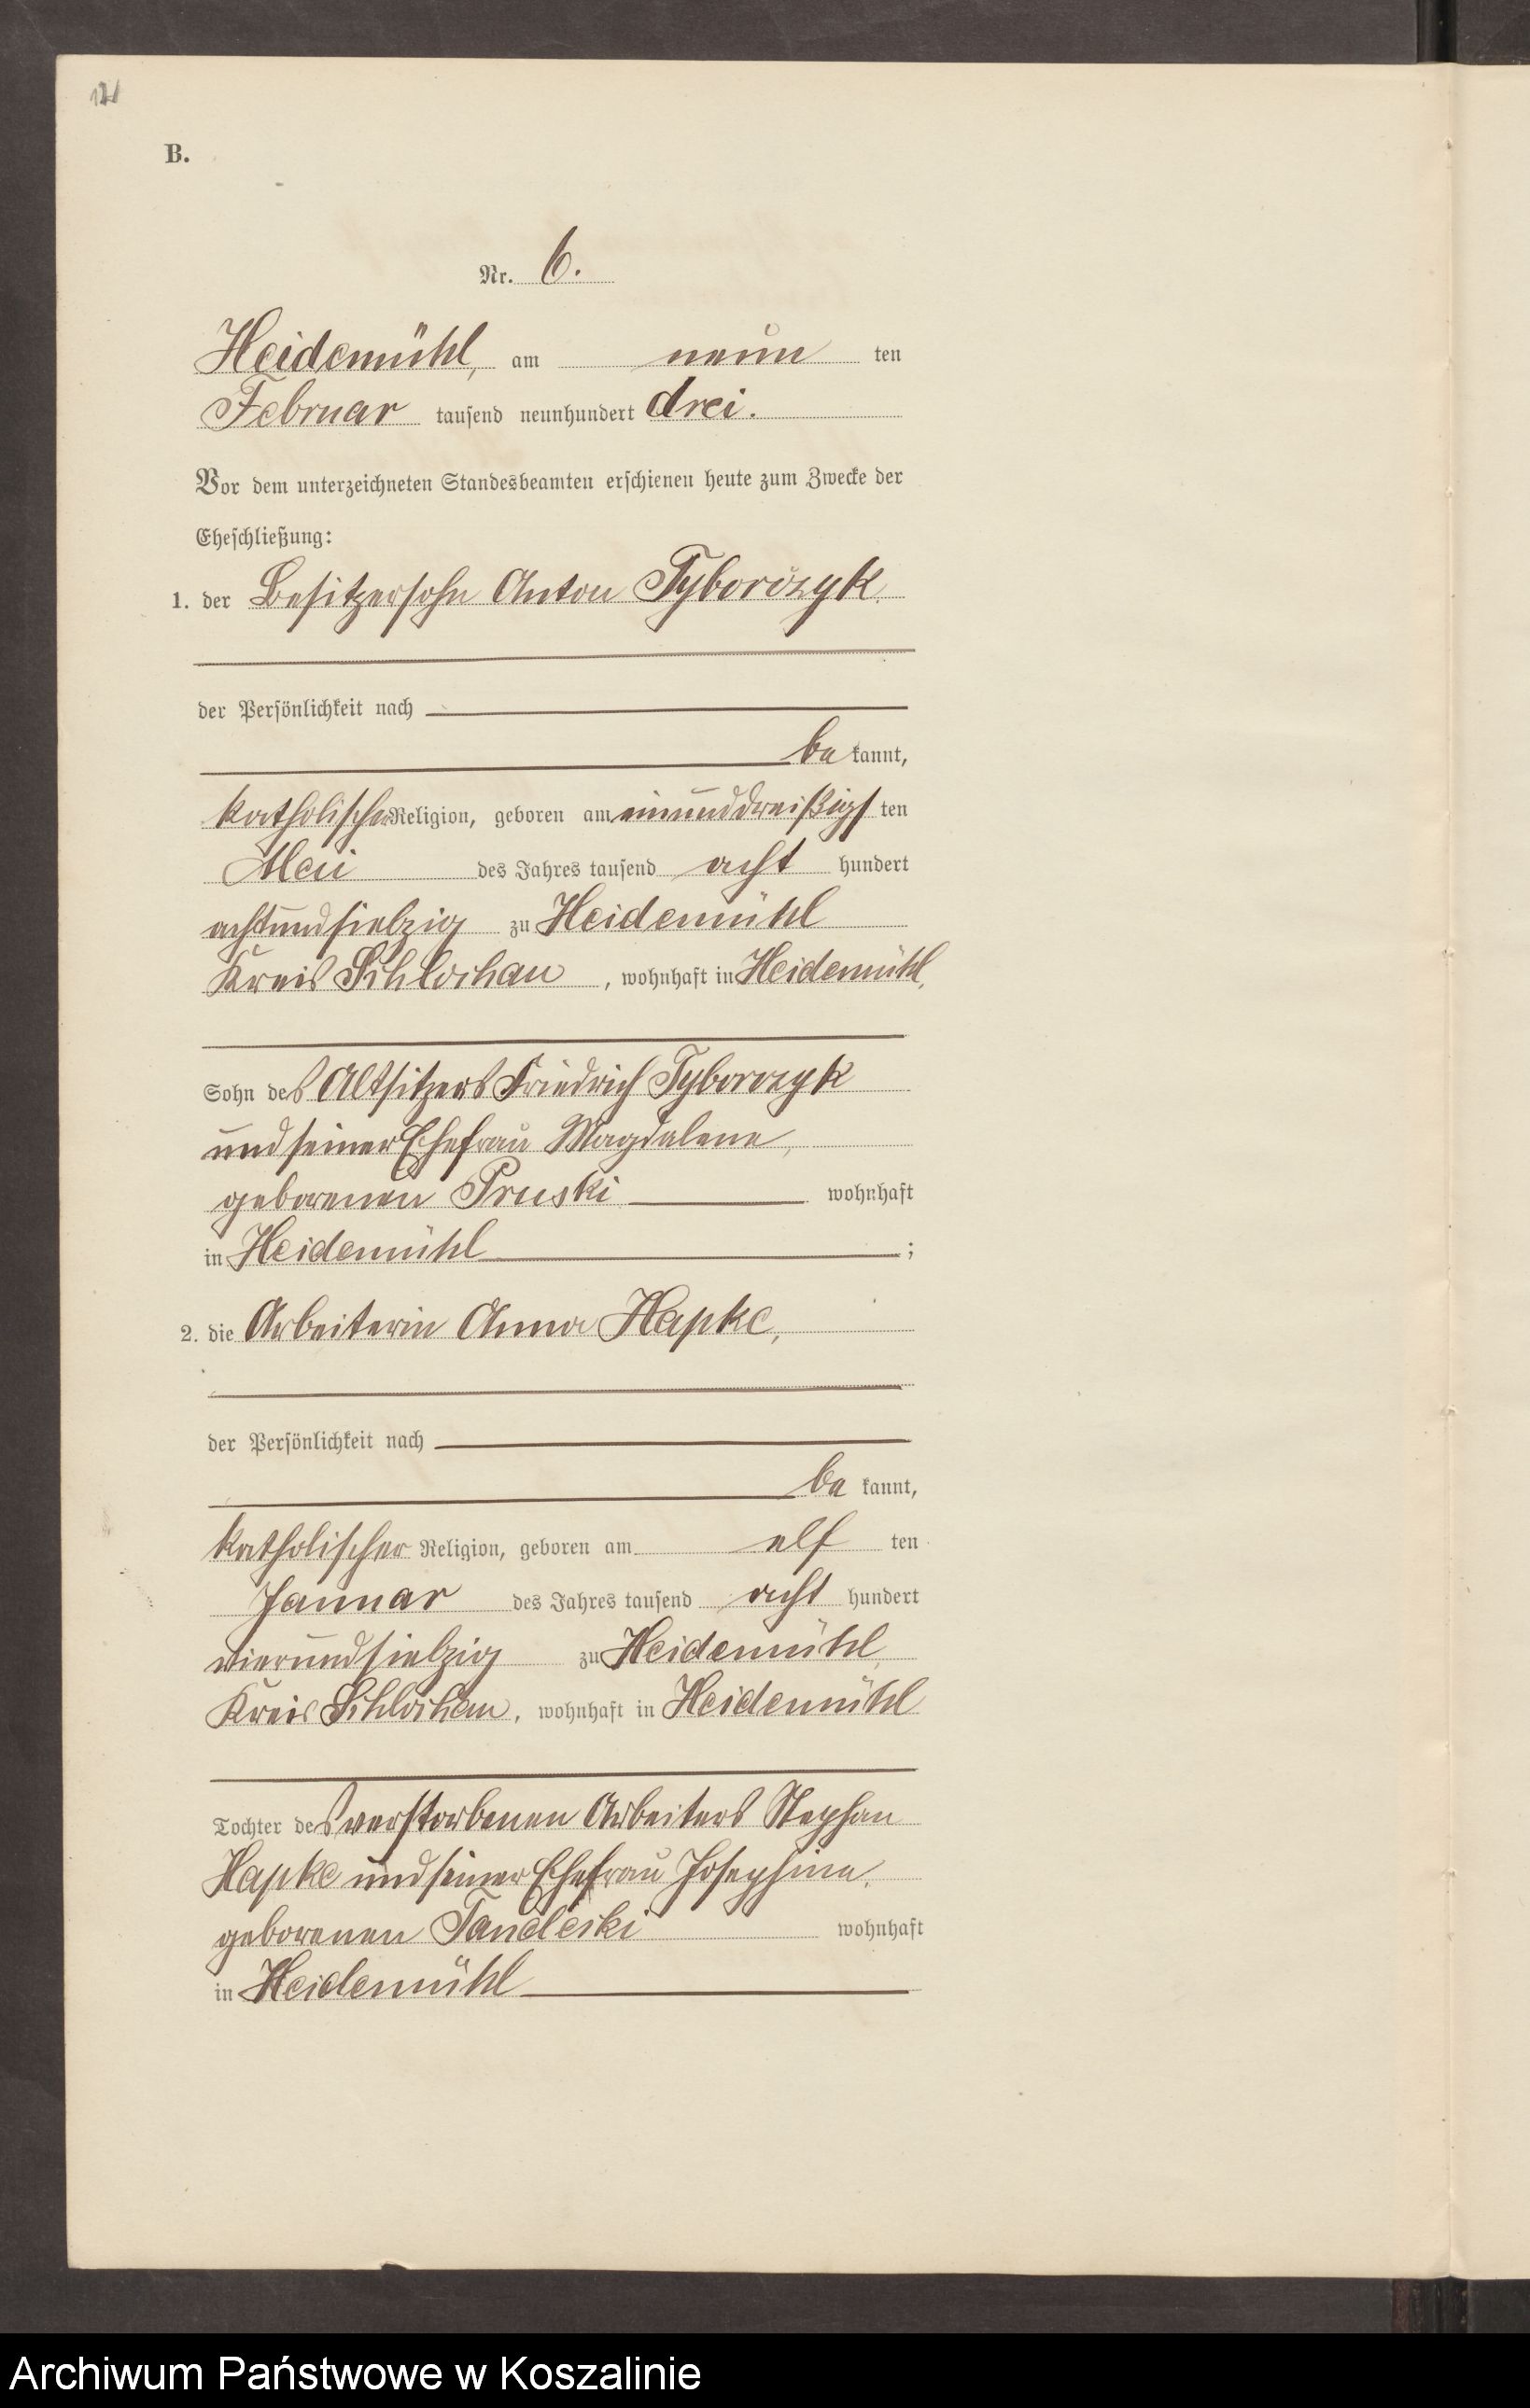 B.
Nr. 6.
Heidemühl, am neun ten
Februar tausend neunhundert drei.
Vor dem unterzeichneten Standesbeamten erschienen heute zum Zwecke der
Eheschließung:
1. der Besitzersohn Anton Tyborczyk
der Persönlichkeit nach
be kannt,
katholischer Religion, geboren am einunddreißigs ten
Mai des Jahres tausend acht hundert
achtundsiebzig zu Heidemühl
Kreis Schlochau, wohnhaft in Heidemühl,
Sohn des Altsitzers Friedrich Tyborczyk
und seiner Ehefrau Magdalene,
geborenen Pruski wohnhaft
in Heidemühl ;
2. die Arbeiterin Anna Hapke,
der Persönlichkeit nach
be kannt,
katholischer Religion, geboren am elf ten
Januar des Jahres tausend acht hundert
vierundsiebzig zu Heidemühl,
Kreis Schlochau, wohnhaft in Heidemühl
Tochter des verstorbenen Arbeiters Stephan
Hapke und seiner Ehefrau Josephine,
geborenen wohnhaft
in Heidemühl
Archiwum Państwowe w Koszalinie